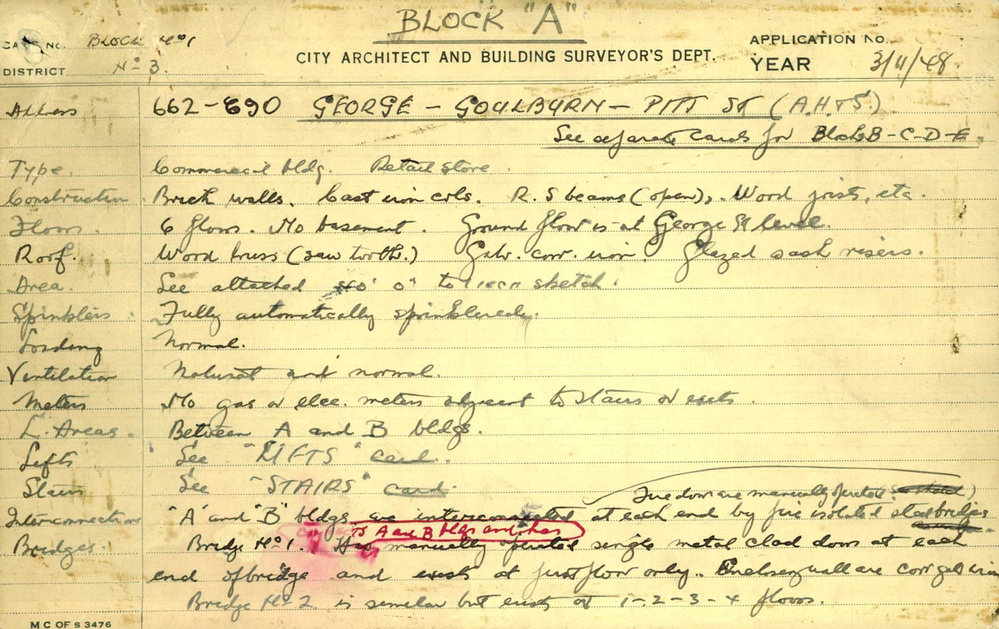 BLOCK "A"
CARD NO. BLOCK No 1
CITY ARCHITECT AND BUILDING SURVEYOR'S DEPT.
APPLICATION NO.
DISTRICT No 3.
YEAR 3/11/48.
Address 662-690 GEORGE - GOULBURN - PITT ST (A.H & S.)
See separate cards for Blocks B-C-D-E
Type. Commercial bldg. Retail Store.
Construction Brick walls. Cast iron cols. R.S beams (open), Wood joists, etc.
Floors. 6 floors. No basement. Ground floor is at George St level.
Roof. Wood truss (saw tooth.) Galv. corr. iron Glazed sash risers.
Area. See attached sketch.
Sprinklers. Fully automatically sprinklered.
Loading Normal.
Ventilation Natural and normal.
Meters No gas or elec. meters adjacent to stairs or exits.
L. Areas. Between A and B bldgs.
Lifts See "LIFTS" card.
Stairs See "STAIRS" card
Fire doors are manually operated
Interconnection "A" and "B" bldgs are interconnected at each end by fire isolated bridges
to A and B bldgs and has
Bridges Bridge No 1. Has manually operated single metal clad doors at each
end of bridge and exists at first floor only. Enclosing wall are corr galv iron
Bridge No 2 is similar but exists at 1-2-3-4 floors.
M C OF S 3476